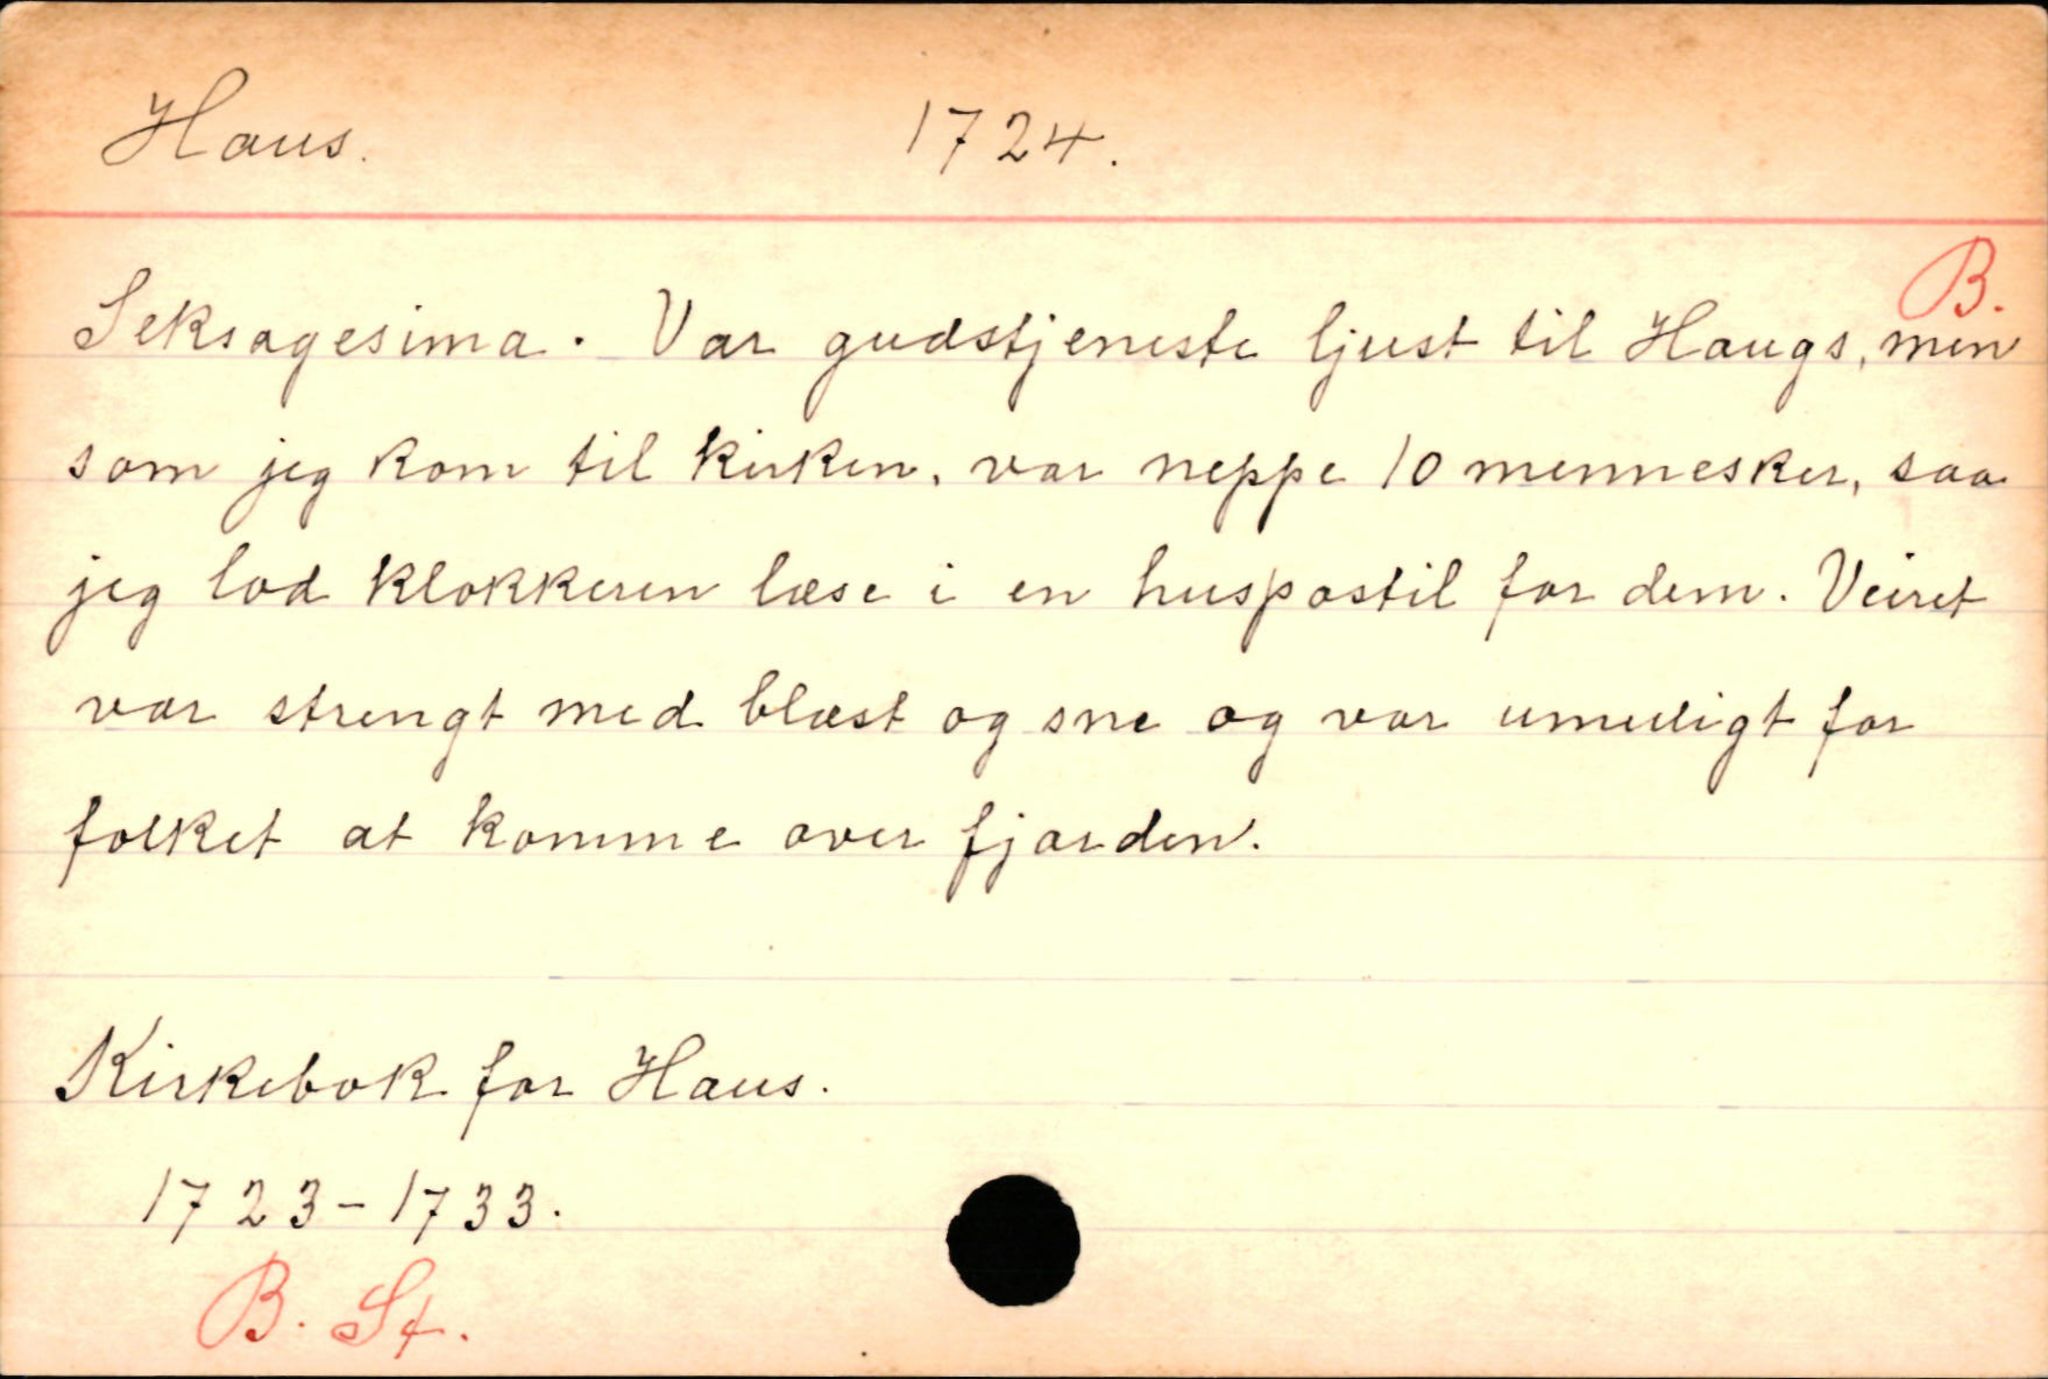 Haus. 1724.
B.
Seksagesima. Var gudstjeneste ljust til Haugs, men
som jeg kom til kirken, var neppe 10 mennesker, saa
jeg lod klokkeren læse i en huspostil for dem. Veiret
var strengt med blæst og sne og var umuligt for
folket at komme over fjorden.
Kirkebok for Haus.
1723-1733.
B. St.